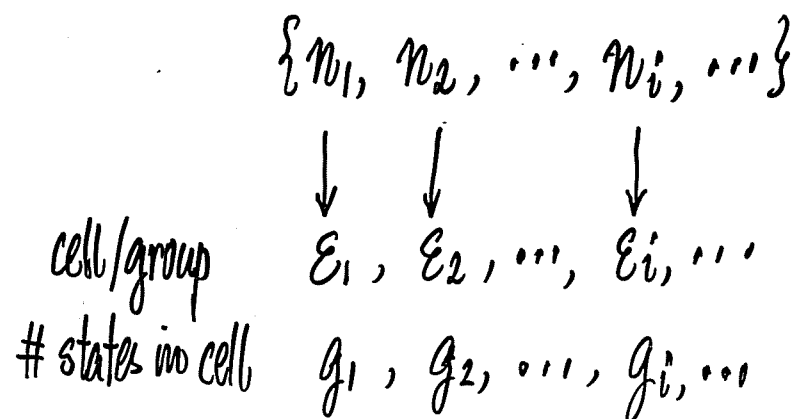 {n₁, n₂, ..., nᵢ, ...}
↓ ↓ ↓
cell/group ε₁, ε₂, ..., εᵢ, ...
# states in cell g₁, g₂, ..., gᵢ, ...